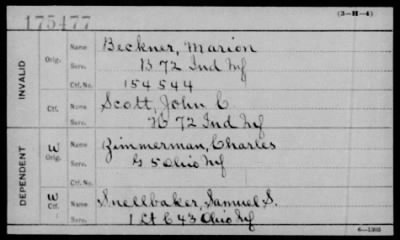 (3-H-4)
175477
INVALID
Orig. Name Beckner, Marion
Serv. B 72 Ind Inf
Ctf. No. 154544
Ctf. Name Scott, John C.
Serv. H 72 Ind Inf
DEPENDENT
W Orig. Name Zimmerman, Charles
Serv. G 5 Ohio Inf
Ctf. No.
W Ctf. Name Snellbaker, Samuel S.
Serv. 1 Lt C 43 Ohio Inf
6-1303